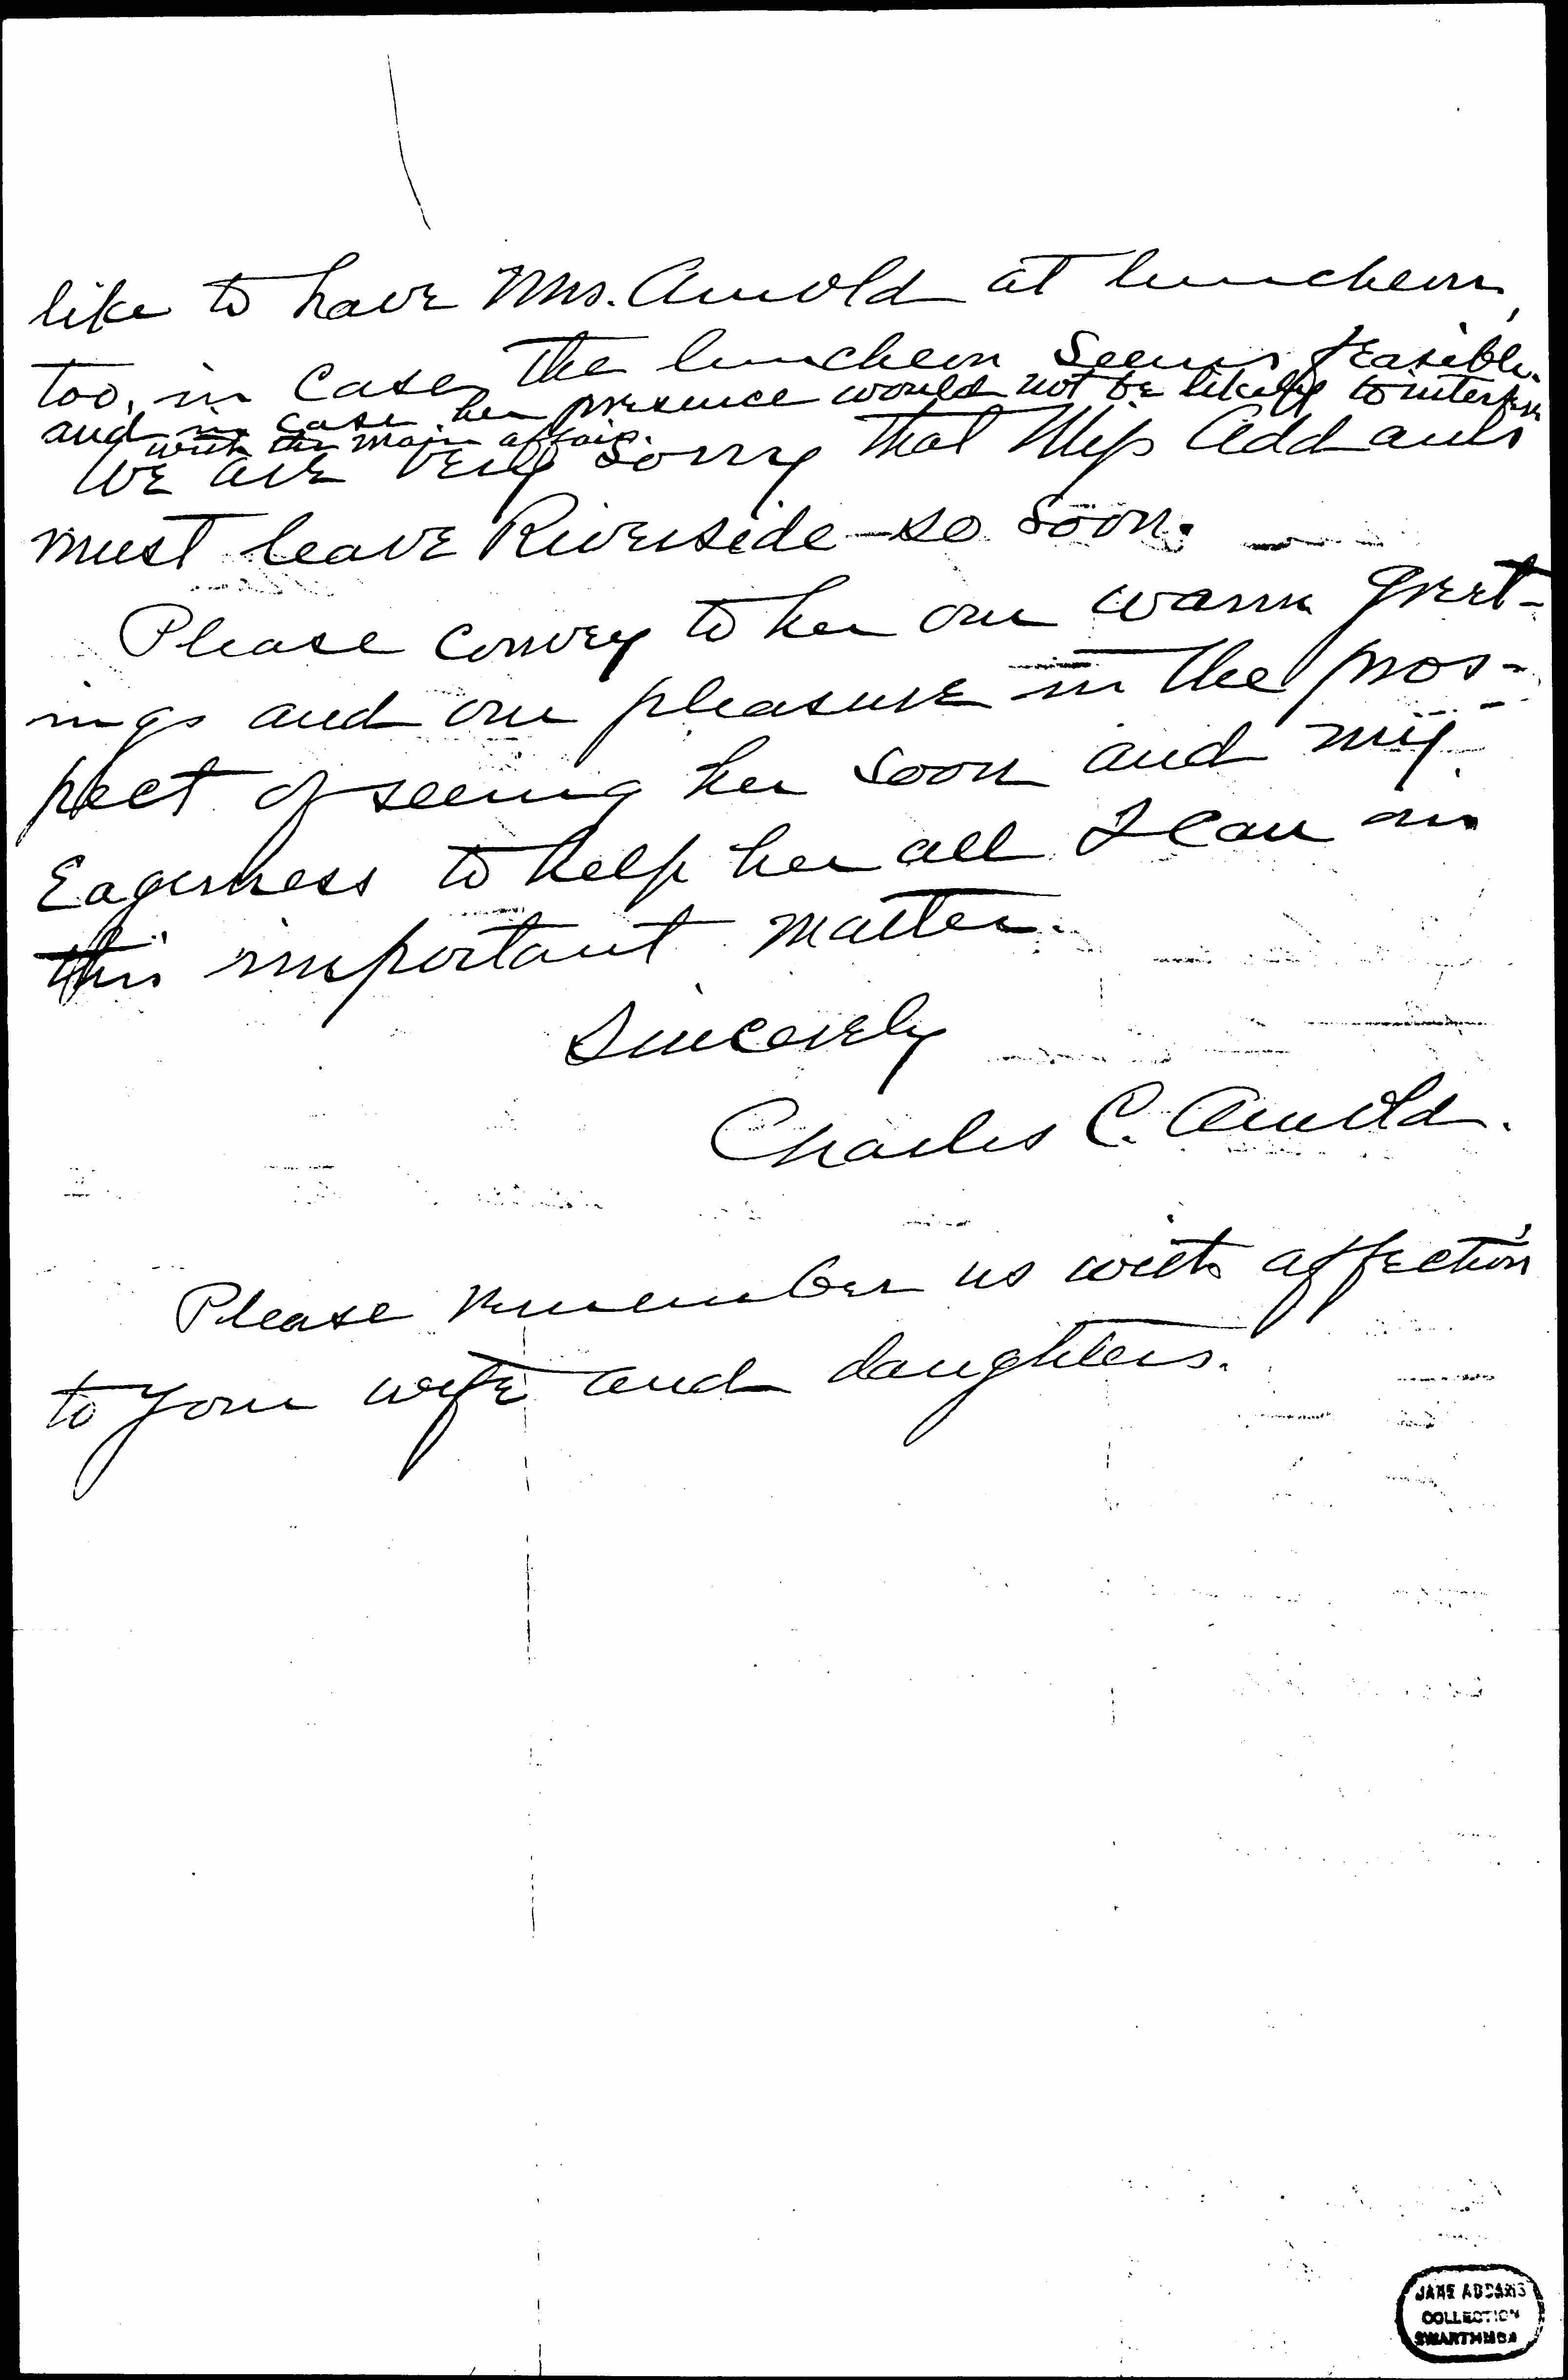 like to have Mrs. Arnold at luncheon,
too, in case the luncheon seems feasible.
and in case her presence would not be likely to interfere
with the main affair.
We are very sorry that Miss Addams
must leave Riverside so soon.
Please convey to her our warm greet-
ings and our pleasure in the pros-
pect of seeing her soon and my
Eagerness to help her all I can in
this important matter.
Sincerely
Charles C. Arnold.
Please remember us with affection
to your wife and daughters.
JANE ADDAMS
COLLECTION
SWARTHMORE